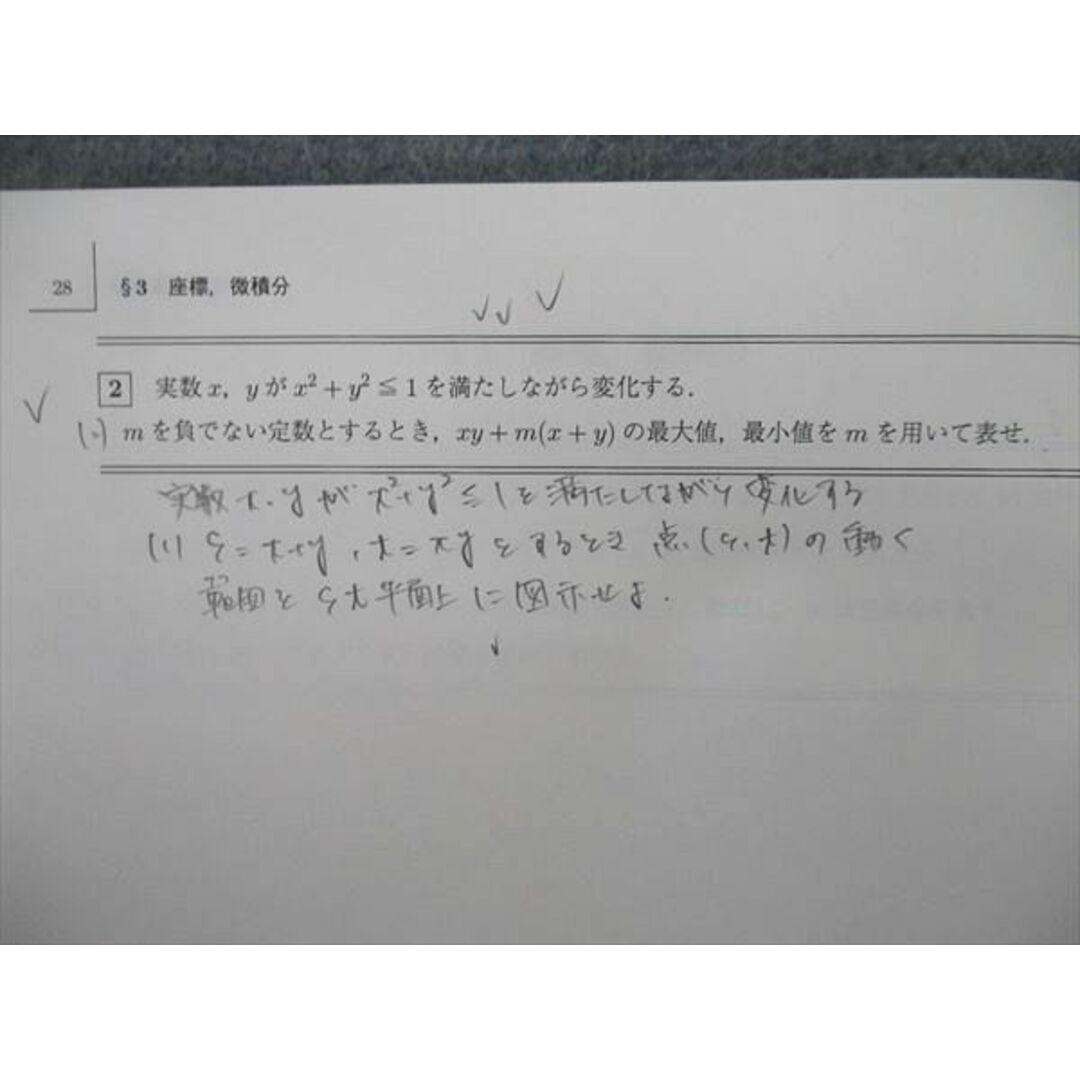 28 §3 座標，微積分
2 実数x，yがx²+y²≦1を満たしながら変化する．
(2) mを負でない定数とするとき，xy+m(x+y)の最大値，最小値をmを用いて表せ．
実数x．yがx²+y²≦1を満たしながら変化する
(1) s=x+y，t=xyとするとき点(s,t)の動く
範囲をst平面上に図示せよ．